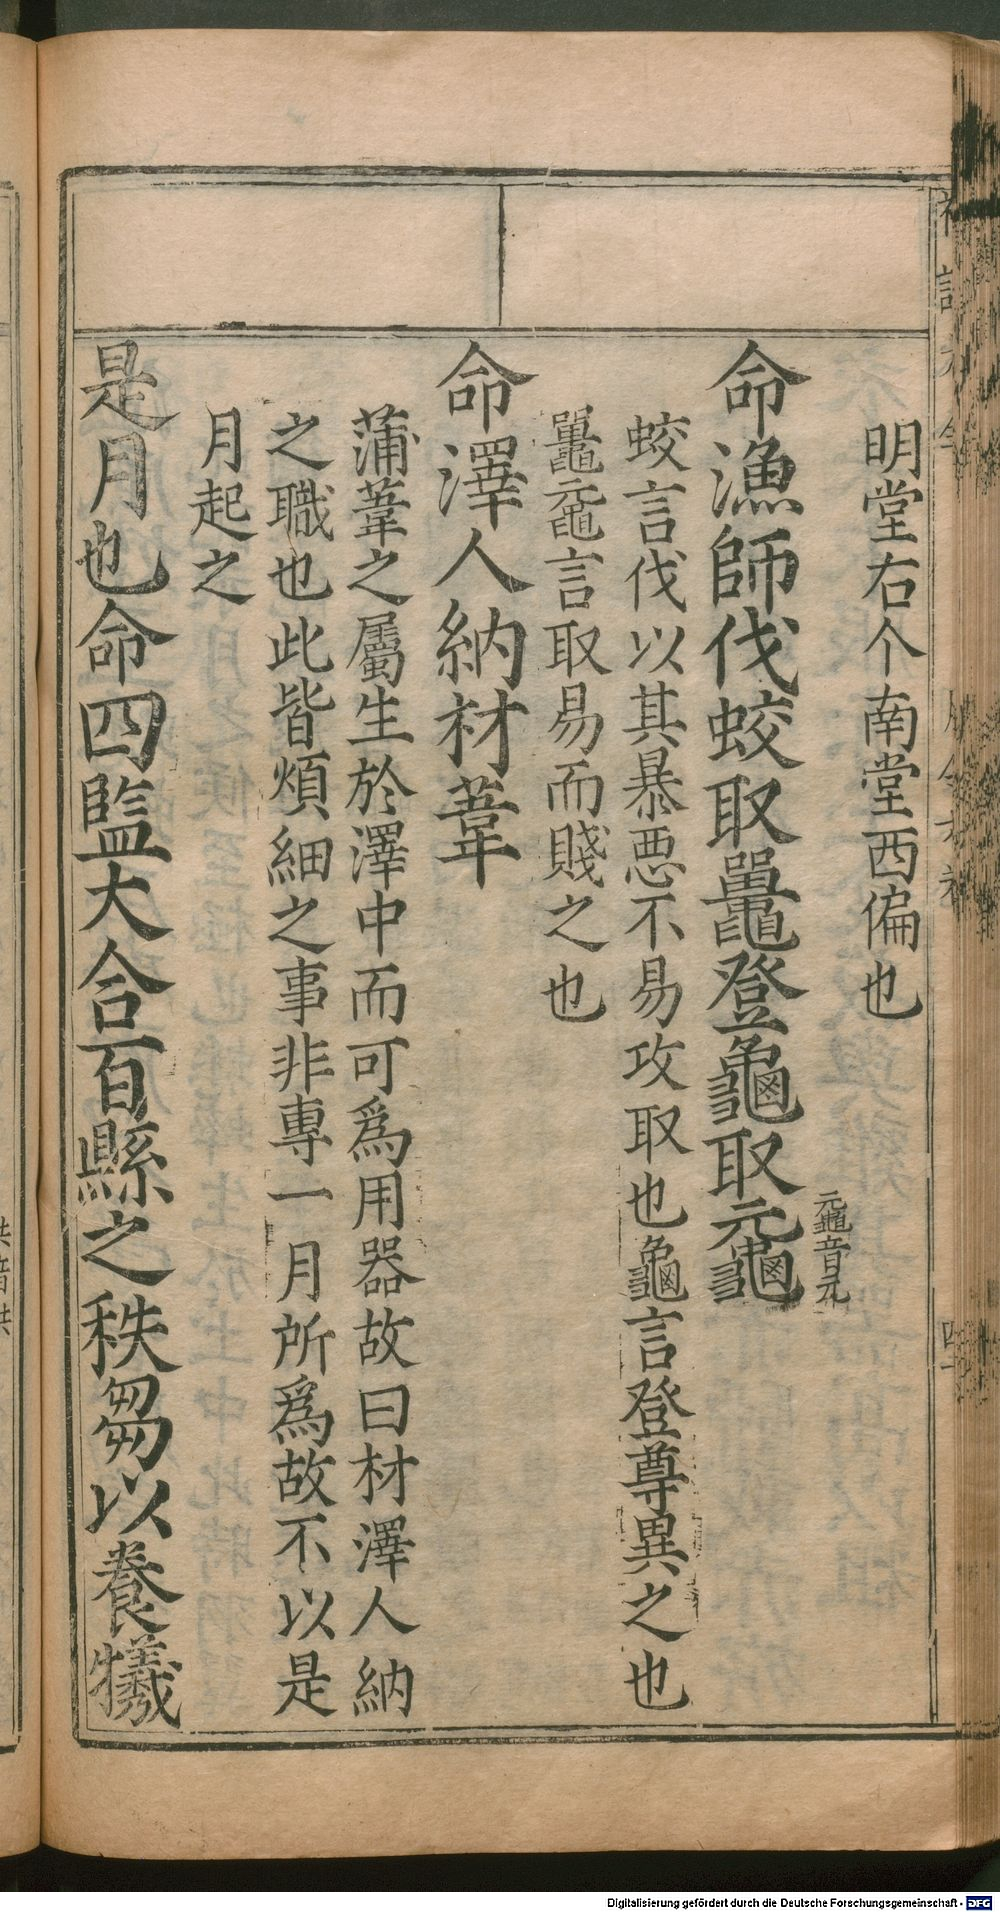 明堂右个南堂西偏也
命漁師伐蛟取鼉登龜取黿
黿音元
蛟言伐以其暴惡不易攻取也龜言登尊異之也
鼉黿言取易而賤之也
命澤人納材葦
蒲葦之屬生於澤中而可為用器故曰材澤人納
之職也此皆煩細之事非專一月所為故不以是
月起之
是月也命四監大合百縣之秩芻以養犧
Digitalisierung gefördert durch die Deutsche Forschungsgemeinschaft - DFG